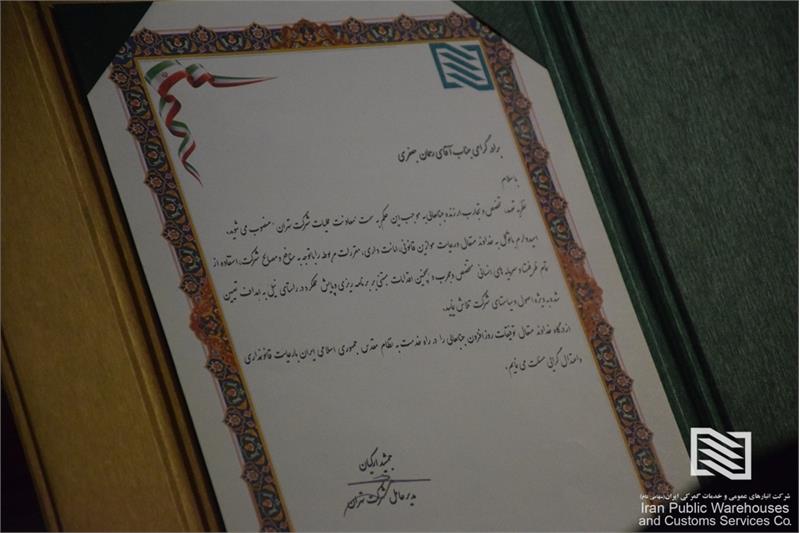 برادر گرامی جناب آقای رحمان جعفری
باسلام
نظر به تعهد، تخصص و تجارب ارزنده جنابعالی به موجب این حکم به سمت معاونت عملیات شرکت تهران منصوب می شوید.
امیدوارم با توکل به خداوند متعال و رعایت موازین قانونی، امانت داری، مقررات مربوطه را با توجه به منافع و مصالح شرکت، استفاده از
تمام ظرفیتها و سرمایه های انسانی متخصص و مجرب و همچنین اقدامات مبتنی بر برنامه ریزی و پایش عملکرد در راستای نیل به اهداف تعیین
شده به ویژه اصول و سیاستهای شرکت تلاش نمایید.
از درگاه خداوند متعال توفیقات روزافزون جنابعالی را در راه خدمت به نظام مقدس جمهوری اسلامی ایران با رعایت قانونمداری
و اعتدال گرایی مسئلت می نمایم.
جمشید
مدیرعامل شرکت تهران
شرکت انبارهای عمومی و خدمات گمرکی ایران (سهامی عام)
Iran Public Warehouses
and Customs Services Co.